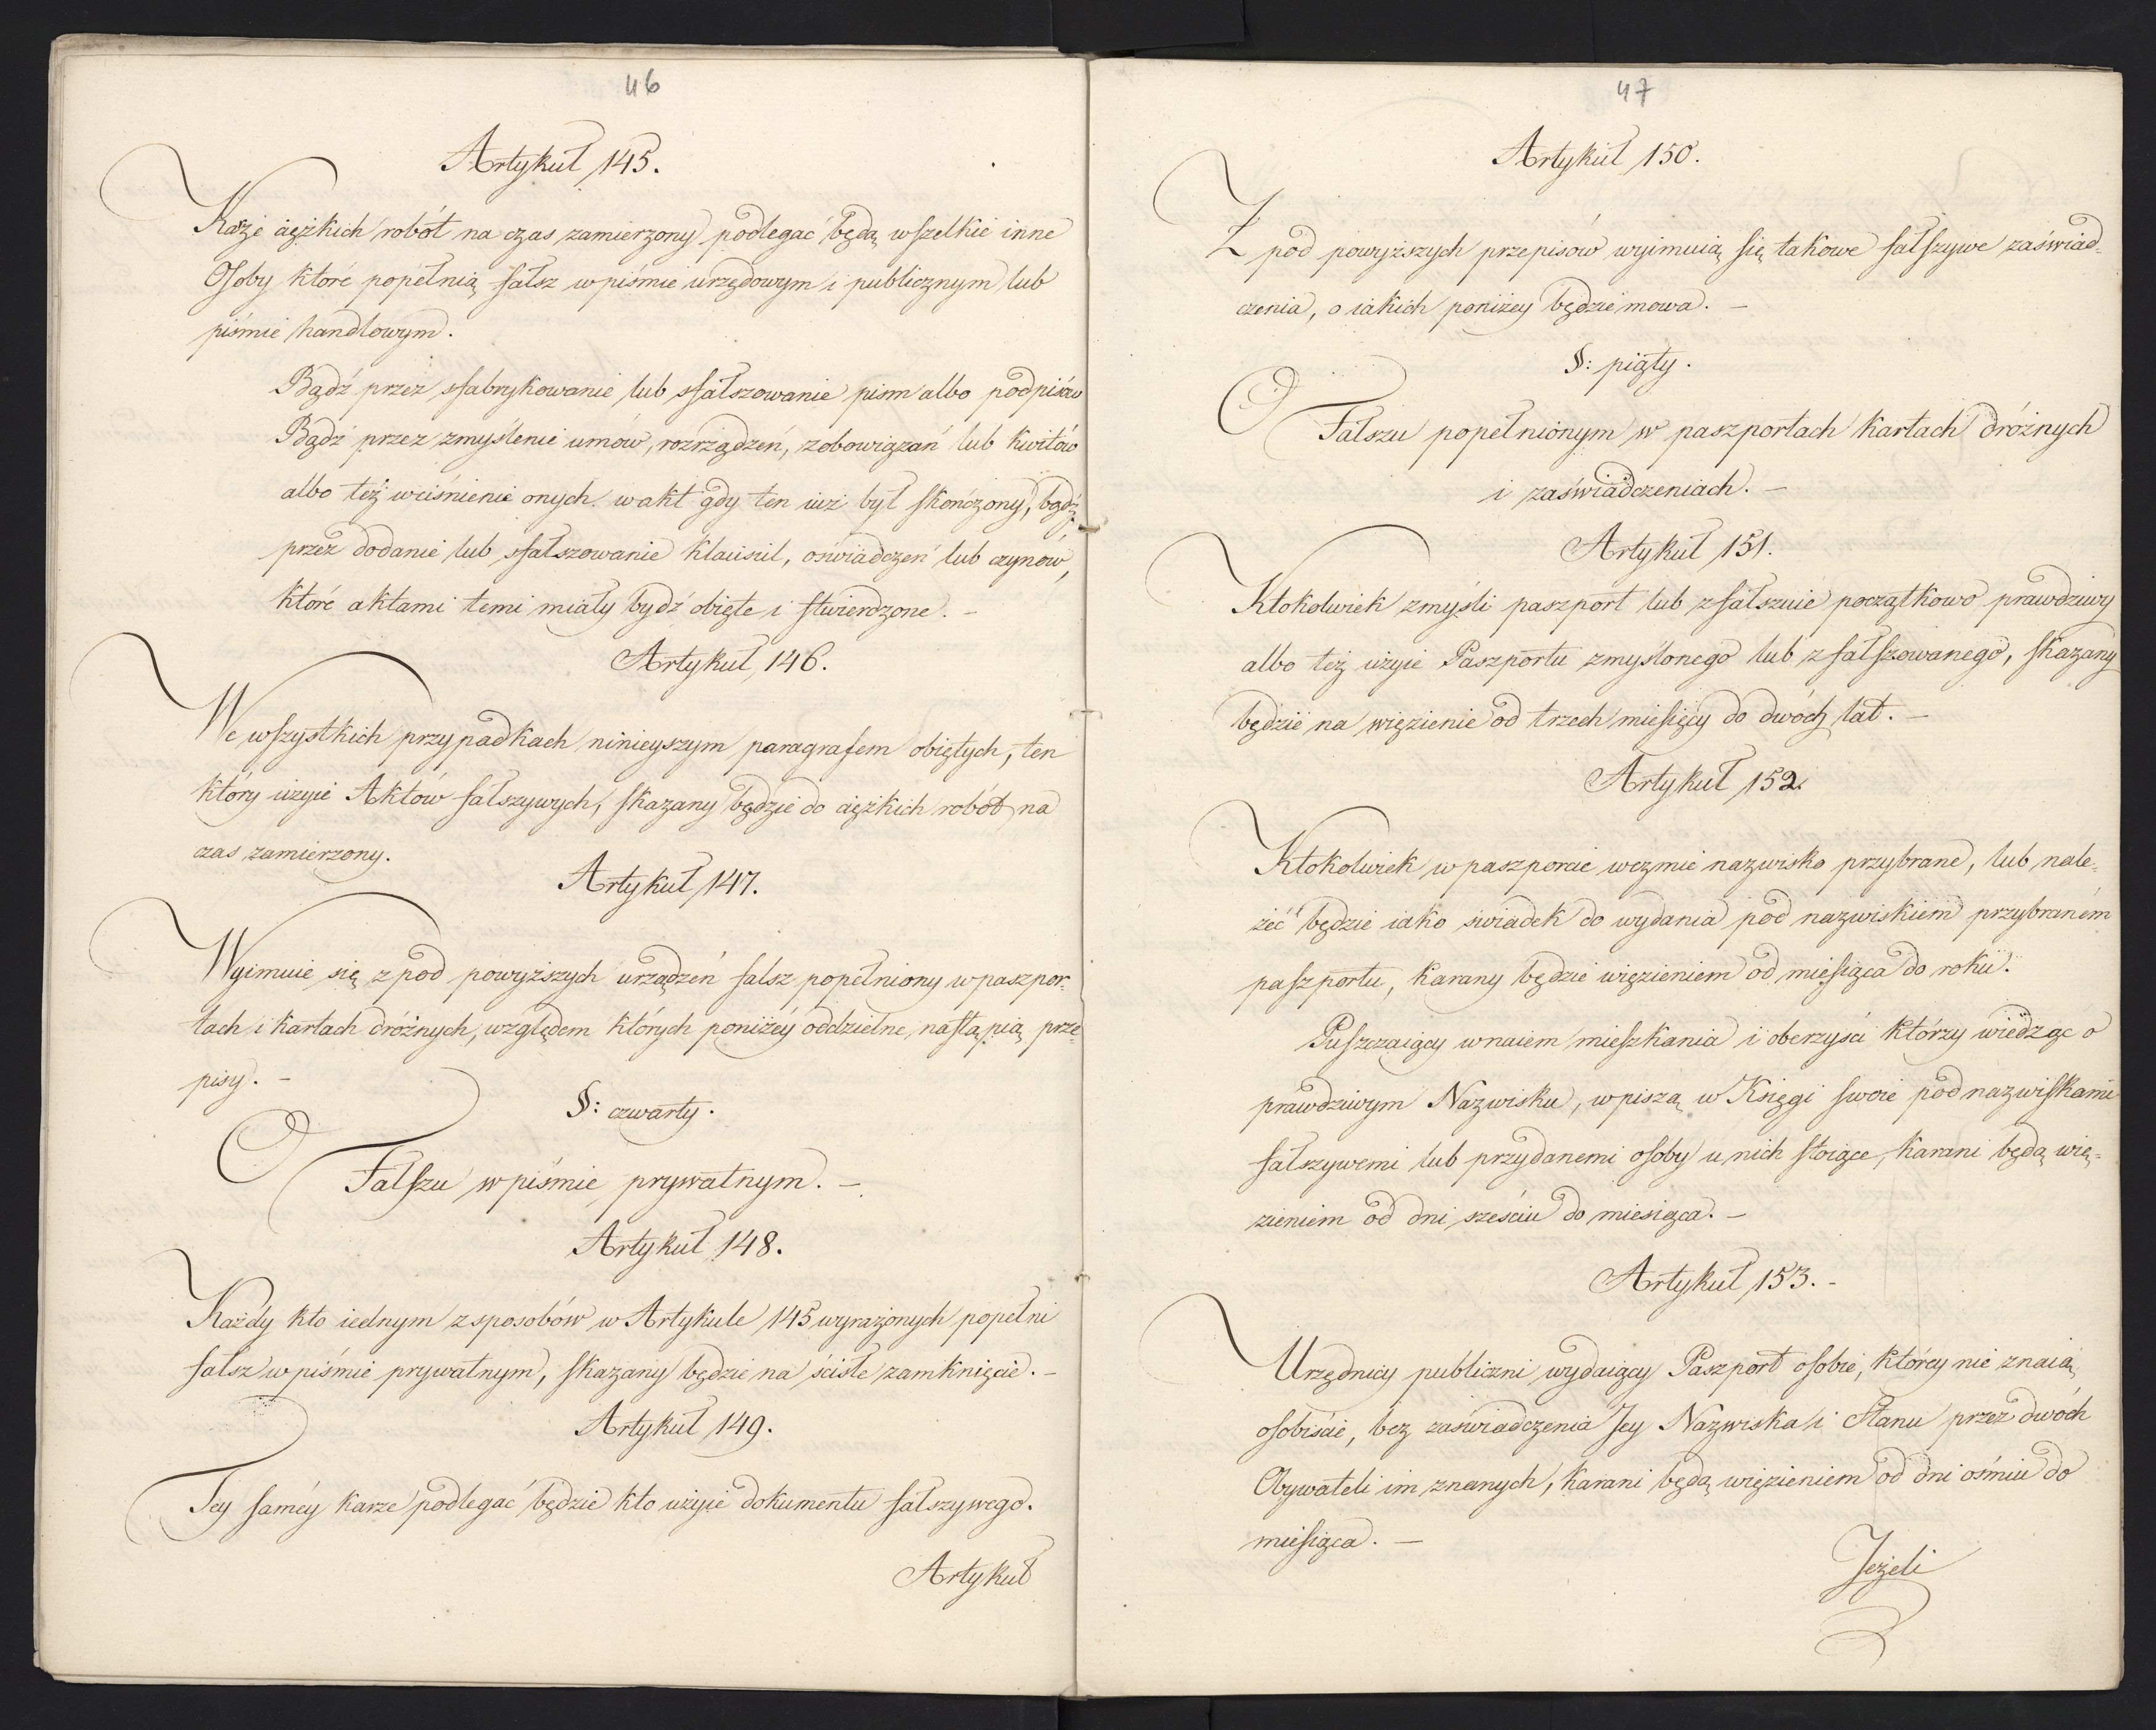 46
Artykuł 145.
Karze ciężkich robót na czas zamierzony podlegać będą wszelkie inne
Osoby które popełnią fałsz w piśmie urzędowym i publicznym lub
piśmie handlowym.
Bądź przez sfabrykowanie lub sfałszowanie pism albo podpisów
Bądź przez zmyślenie umów, rozrządzeń, zobowiązań lub kwitów
albo też wciśnienie onych w akt gdy ten iuż był skończony, bądź
przez dodanie lub sfałszowanie klauzul, oświadczeń lub czynów,
które aktami temi miały bydź obięte i stwierdzone. –
Artykuł 146.
We wszystkich przypadkach ninieyszym paragrafem obiętych, ten
który użyie Aktów fałszywych, skazany będzie do ciężkich robót na
czas zamierzony.
Artykuł 147.
Wyimuie się z pod powyższych urządzeń fałsz popełniony w paszpor-
tach i kartach dróżnych, względem których poniżéy oddzielne nastąpią prze-
pisy. –
§: czwarty.
O Fałszu w piśmie prywatnym. –
Artykuł 148.
Każdy kto iednym z sposobów w Artykule 145 wyrażonych popełni
fałsz w piśmie prywatnym, skazany będzie na ścisłe zamknięcie. –
Artykuł 149.
Tey saméy karze podlegać będzie kto użyie dokumentu fałszywego.
Artykuł
47
Artykuł 150.
Z pod powyższych przepisów wyimuią się takowe fałszywe zaświad-
czenia, o iakich poniżey będzie mowa. –
§: piąty.
O Fałszu popełnionym w paszportach kartach dróżnych
i zaświadczeniach. –
Artykuł 151.
Ktokolwiek zmyśli paszport lub zfałszuie początkowo prawdziwy
albo też użyie Paszportu zmyślonego lub zfałszowanego, skazany
będzie na więzienie od trzech miesięcy do dwóch lat. –
Artykuł 152.
Ktokolwiek w paszporcie weźmie nazwisko przybrane, lub nale-
żeć będzie iako świadek do wydania pod nazwiskiem przybraném
paszportu, karany będzie więzieniem od miesiąca do roku.
Puszczaiący w naiem mieszkania i oberzyści którzy wiedząc o
prawdziwym Nazwisku, wpiszą w Księgi swoie pod nazwiskami
fałszywemi lub przydanemi osoby u nich stoiące, karani będą wię-
zieniem od dni sześciu do miesiąca. –
Artykuł 153. –
Urzędnicy publiczni wydaiący Paszport osobie, któréy nie znaią
osobiście, bez zaświadczenia Jey Nazwiska i Stanu przez dwóch
Obywateli im znanych, karani będą więzieniem od dni ośmiu do
miesiąca. –
Jeżeli